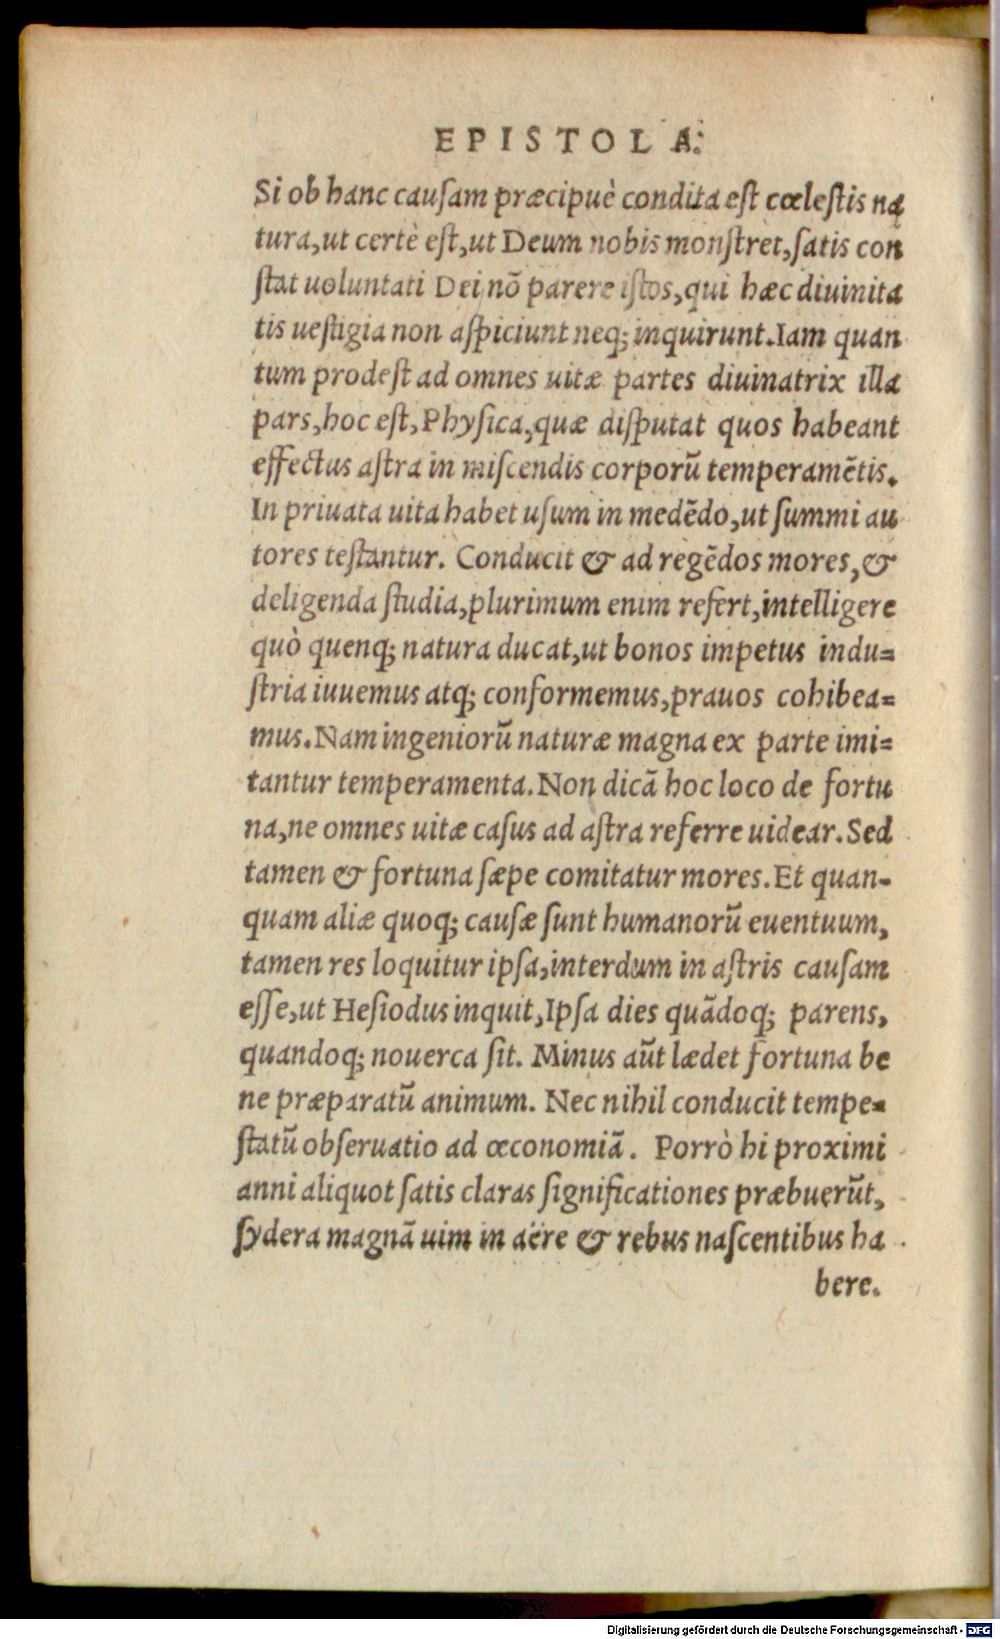 EPISTOLA.
Si ob hanc causam præcipuè condita est cœlestis na
tura, ut certè est, ut Deum nobis monstret, satis con
stat uoluntati Dei nõ parere istos, qui hæc diuinita
tis uestigia non aspiciunt neq; inquirunt. Iam quan
tum prodest ad omnes uitæ partes diuinatrix illa
pars, hoc est, Physica, quæ disputat quos habeant
effectus astra in miscendis corporũ temperamẽtis.
In priuata uita habet usum in medẽdo, ut summi au
tores testantur. Conducit & ad regẽdos mores, &
deligenda studia, plurimum enim refert, intelligere
quò quenq; natura ducat, ut bonos impetus indu=
stria iuuemus atq; conformemus, prauos cohibea=
mus. Nam ingeniorũ naturæ magna ex parte imi=
tantur temperamenta. Non dicã hoc loco de fortu
na, ne omnes uitæ casus ad astra referre uidear. Sed
tamen & fortuna sæpe comitatur mores. Et quan-
quam aliæ quoq; causæ sunt humanorũ euentuum,
tamen res loquitur ipsa, interdum in astris causam
esse, ut Hesiodus inquit, Ipsa dies quãdoq; parens,
quandoq; nouerca sit. Minus aũt lædet fortuna be
ne præparatũ animum. Nec nihil conducit tempe=
statũ obseruatio ad œconomiã. Porrò hi proximi
anni aliquot satis claras significationes præbuerũt,
sydera magnã uim in aëre & rebus nascentibus ha
bere.
Digitalisierung gefördert durch die Deutsche Forschungsgemeinschaft - DFG